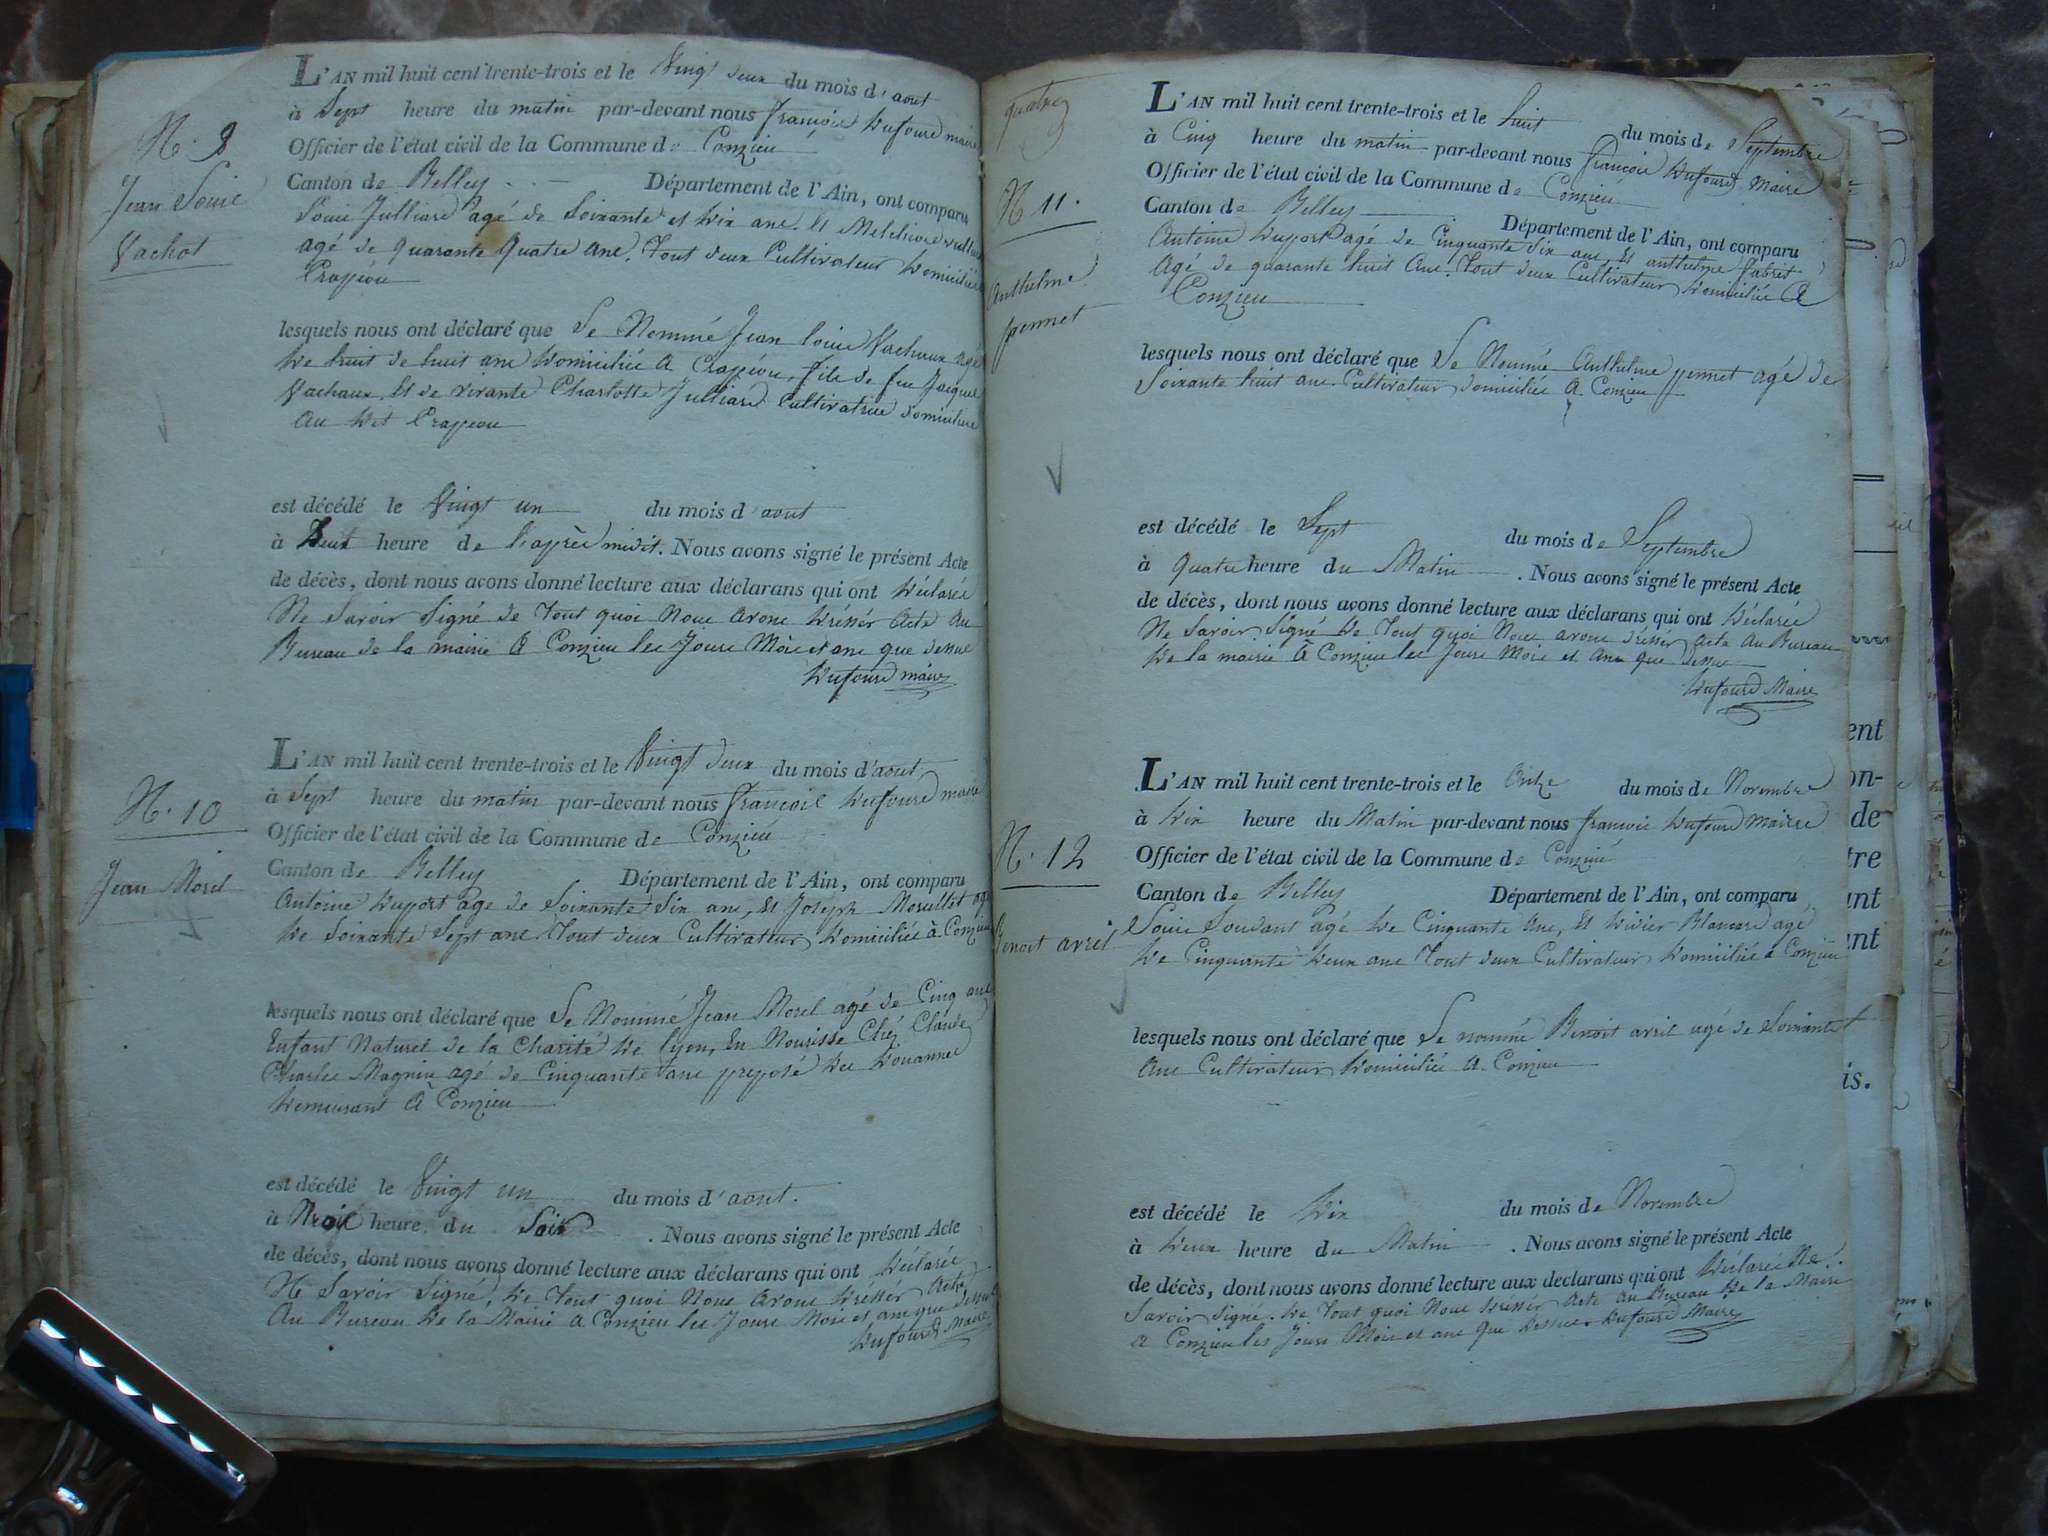 N. 9
Jean Louis
Vachot
L'AN mil huit cent trente-trois et le Vingt deux du mois d'aout
à Sept heure du matin par-devant nous françois Dufourd maire
Officier de l'état civil de la Commune de Conzieu
Canton de Belley Département de l'Ain, ont comparu
Louis Julliard agé de Soixante et dix ans. Et Melchior
agé de quarante quatre ans. Tout deux Cultivateur Domicilié
Crapéou
lesquels nous ont déclaré que Le Nommé Jean louis Vachaux agé
De huit de huit ans Domiciliée A Crapéou, fils de feu Jacque
Vachaux, Et de vivante Charlotte Julliard Cultivatrice domiciliée
Au Dit Crapeou
est décédé le Vingt un du mois d'aout
à Deux heure de l'après midit. Nous avons signé le présent Acte
de décès, dont nous avons donné lecture aux déclarans qui ont Déclarés
Ne Savoir Signé de Tout quoi Nous Avons Dréssér Acte Au
Bureau de la mairie A Conzieu les Jours Mois et ans que dessus
Dufourd maire
N. 10
Jean Morel
L'AN mil huit cent trente-trois et le Vingt deux du mois d'aout
à Sept heure du matin par-devant nous françois Dufourd maire
Officier de l'état civil de la Commune de Conzieu
Canton de Belley Département de l'Ain, ont comparu
Antoine Duport age de Soixante Six ans, Et Joseph Morullet agé
De Soixante Sept ans Tout deux Cultivateur Domiciliée à Conzieu
lesquels nous ont déclaré que Le Nommé Jean Morel agé de Cinq ans
Enfant Naturel de la Charité De lyon, En Nourisse Ché Claude
Charles Magnin agé de Cinquante ans preposé Des Douannes
Demeurant A Conzieu
est décédé le Vingt un du mois d'aout.
à Trois heure du Soir. Nous avons signé le présent Acte
de décès, dont nous avons donné lecture aux déclarans qui ont Déclarés
Ne Savoir Signé, De Tout quoi Nous Avons Dréssér Acte
Au Bureau De la Mairie A Conzieu les Jours Mois et ans que dessus
Dufourd Maire
quatre
N. 11.
Anthelme
pennet
L'AN mil huit cent trente-trois et le huit du mois de Septembre
à Cinq heure du matin par-devant nous françois Dufourd Maire
Officier de l'état civil de la Commune de Conzieu
Canton de Belley Département de l'Ain, ont comparu
Antoine Duport agé de Cinquante Six ans, Et anthelme fabret
Agé de quarante huit Ans. Tout deux Cultivateur Domiciliée A
Conzieu
lesquels nous ont déclaré que Le Nommé Anthelme pennet agé de
Soixante huit ans Cultivateur domiciliée A Conzieu
est décédé le Sept du mois de Septembre
à quatre heure du Matin. Nous avons signé le présent Acte
de décès, dont nous avons donné lecture aux déclarans qui ont Déclarés
Ne Savoir Signé De Tout quoi Nous avons dréssér Acte Au Bureau
De la mairie A Conzieu les Jours Mois et Ans que dessus
Dufourd Maire
N. 12
Benoit avril
L'AN mil huit cent trente-trois et le Onze du mois de Novembre
à Dix heure du Matin par-devant nous francois Dufourd Mairie
Officier de l'état civil de la Commune de Conzieu
Canton de Belley Département de l'Ain, ont comparu
Louis Soudant agé De Cinquante Ans, Et Didier Blancard agé
De Cinquante Deux ans Tout deux Cultivateur Domiciliée à Conzieu
lesquels nous ont déclaré que Le nommé Benoit avril agé de Soixante
Ans Cultivateur Domiciliée A Conzieu
est décédé le Dix du mois de Novembre
à Deux heure du Matin. Nous avons signé le présent Acte
de décès, dont nous avons donné lecture aux déclarans qui ont Déclarés Ne
Savoir Signé. De Tout quoi Nous Dréssér Acte Au Bureau De la Mairie
A Conzieu les Jours Mois et ans Que Dessus Dufourd Maire
ent
on-
de
tre
ant
ant
is.